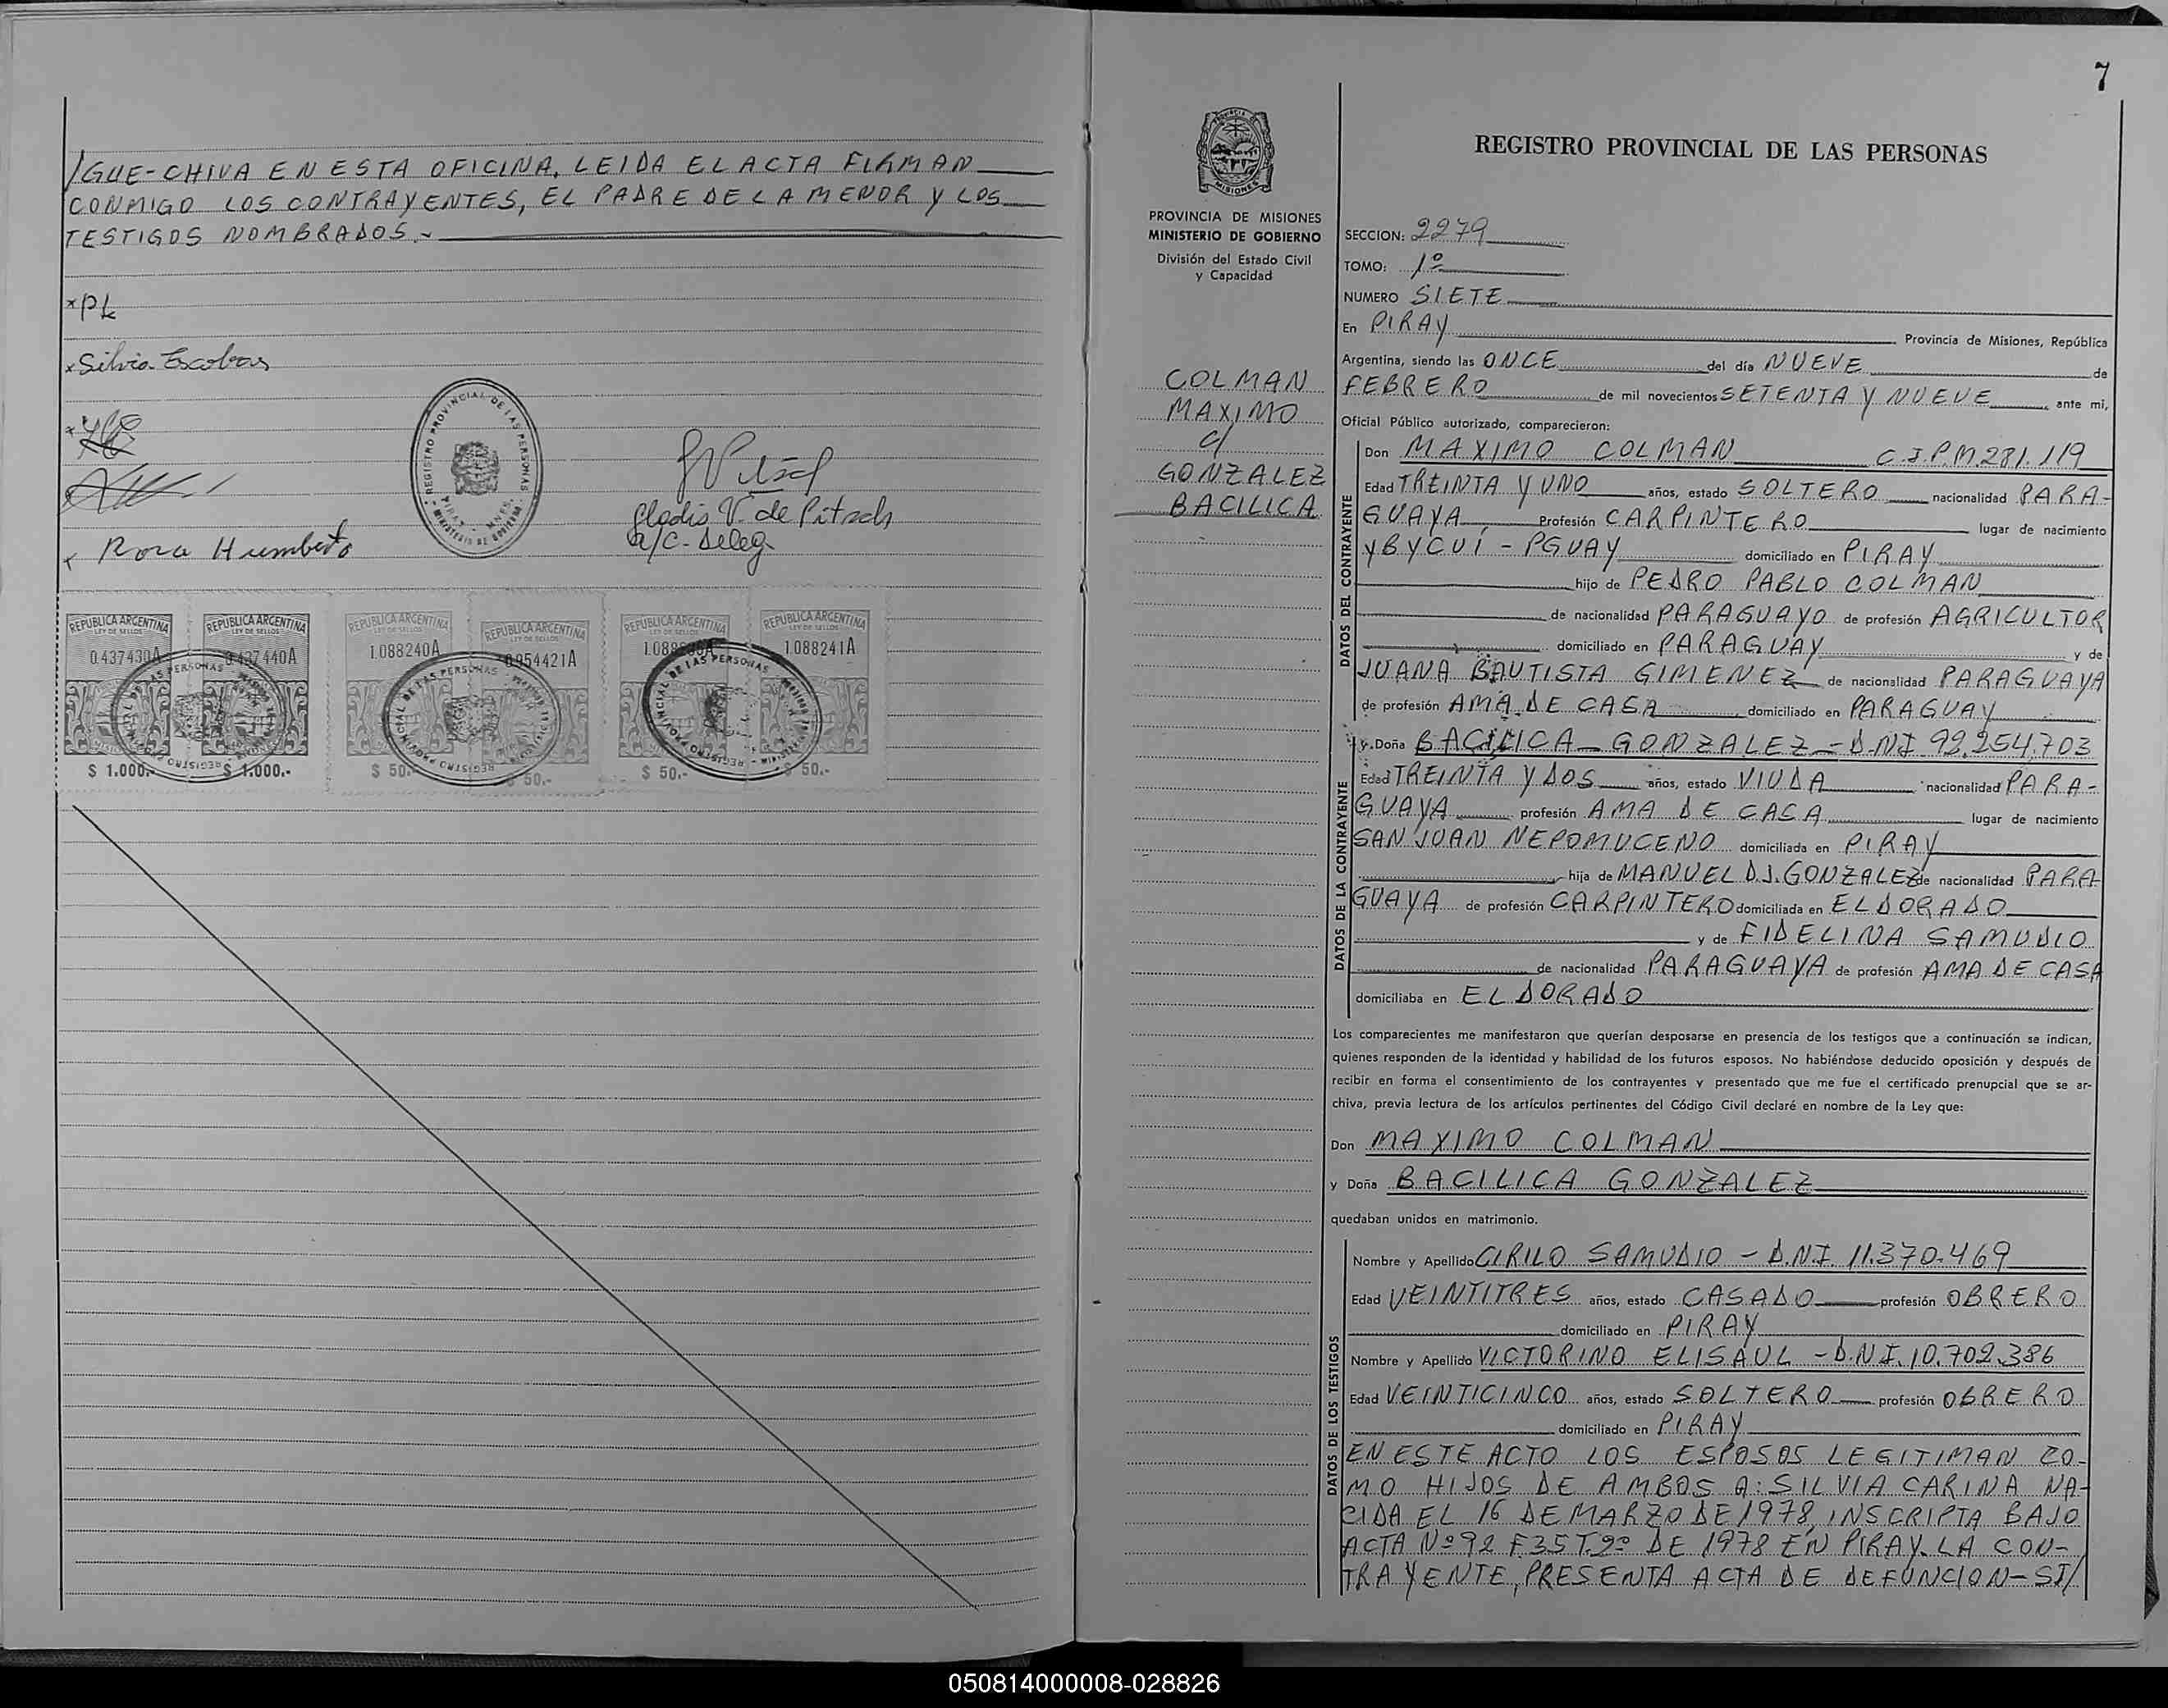 /GUE-CHIVA EN ESTA OFICINA. LEIDA EL ACTA FIRMAN
CONMIGO LOS CONTRAYENTES, EL PADRE DE LA MENOR Y LOS
TESTIGOS NOMBRADOS.-
x PL
x Silvia Escobar
x
REGISTRO PROVINCIAL DE LAS PERSONAS
MINISTERIO DE GOBIERNO
Gladis V. de Pitsch
a/c. Deleg.
x Rosa Humberto
REPUBLICA ARGENTINA REPUBLICA ARGENTINA REPUBLICA ARGENTINA REPUBLICA ARGENTINA REPUBLICA ARGENTINA REPUBLICA ARGENTINA
LEY DE SELLOS LEY DE SELLOS LEY DE SELLOS LEY DE SELLOS LEY DE SELLOS LEY DE SELLOS
0.437430A 0.437440A 1.088240A 0954421A 1.088241A
$ 1.000.- $ 1.000.- $ 50.- $ 50.- $ 50.- $ 50.-
7
MISIONES
PROVINCIA DE MISIONES
MINISTERIO DE GOBIERNO
División del Estado Civil
y Capacidad
COLMAN
MAXIMO
c/
GONZALEZ
BACILICA
REGISTRO PROVINCIAL DE LAS PERSONAS
SECCION: 2279
TOMO: 1º
NUMERO SIETE
En PIRAY Provincia de Misiones, República
Argentina, siendo las ONCE del día NUEVE de
FEBRERO de mil novecientos SETENTA Y NUEVE, ante mi,
Oficial Público autorizado, comparecieron:
DATOS DEL CONTRAYENTE
Don MAXIMO COLMAN C.I.P.M.281.119
Edad TREINTA Y UNO años, estado SOLTERO nacionalidad PARA-
GUAYA, Profesión CARPINTERO lugar de nacimiento
YBYCUÍ - PGUAY domiciliado en PIRAY
hijo de PEDRO PABLO COLMAN
de nacionalidad PARAGUAYO de profesión AGRICULTOR
domiciliado en PARAGUAY y de
JUANA BAUTISTA GIMENEZ de nacionalidad PARAGUAYA
de profesión AMA DE CASA domiciliado en PARAGUAY
DATOS DE LA CONTRAYENTE
y Doña BACILICA GONZALEZ - D.N.I 92.254.703
Edad TREINTA Y DOS años, estado VIUDA nacionalidad PARA-
GUAYA profesión AMA DE CASA lugar de nacimiento
SAN JUAN NEPOMUCENO domiciliada en PIRAY
hija de MANUEL D.J. GONZALEZ de nacionalidad PARA
GUAYA de profesión CARPINTERO domiciliada en ELDORADO
y de FIDELINA SAMUDIO
de nacionalidad PARAGUAYA de profesión AMA DE CASA
domiciliaba en ELDORADO
Los comparecientes me manifestaron que querían desposarse en presencia de los testigos que a continuación se indican,
quienes responden de la identidad y habilidad de los futuros esposos. No habiéndose deducido oposición y después de
recibir en forma el consentimiento de los contrayentes y presentado que me fue el certificado prenupcial que se ar-
chiva, previa lectura de los artículos pertinentes del Código Civil declaré en nombre de la Ley que:
Don MAXIMO COLMAN
y Doña BACILICA GONZALEZ
quedaban unidos en matrimonio.
DATOS DE LOS TESTIGOS
Nombre y Apellido CIRILO SAMUDIO - D.N.I. 11.370.469
Edad VEINTITRES años, estado CASADO profesión OBRERO
domiciliado en PIRAY
Nombre y Apellido VICTORINO ELISAUL - D.N.I. 10.702.386
Edad VEINTICINCO años, estado SOLTERO profesión OBRERO
domiciliado en PIRAY
EN ESTE ACTO LOS ESPOSOS LEGITIMAN CO-
MO HIJOS DE AMBOS A: SILVIA CARINA NA-
CIDA EL 16 DE MARZO DE 1978, INSCRIPTA BAJO
ACTA Nº 92 F.35 T.2º DE 1978 EN PIRAY. LA CON-
TRAYENTE, PRESENTA ACTA DE DEFUNCION-SI/
050814000008-028826